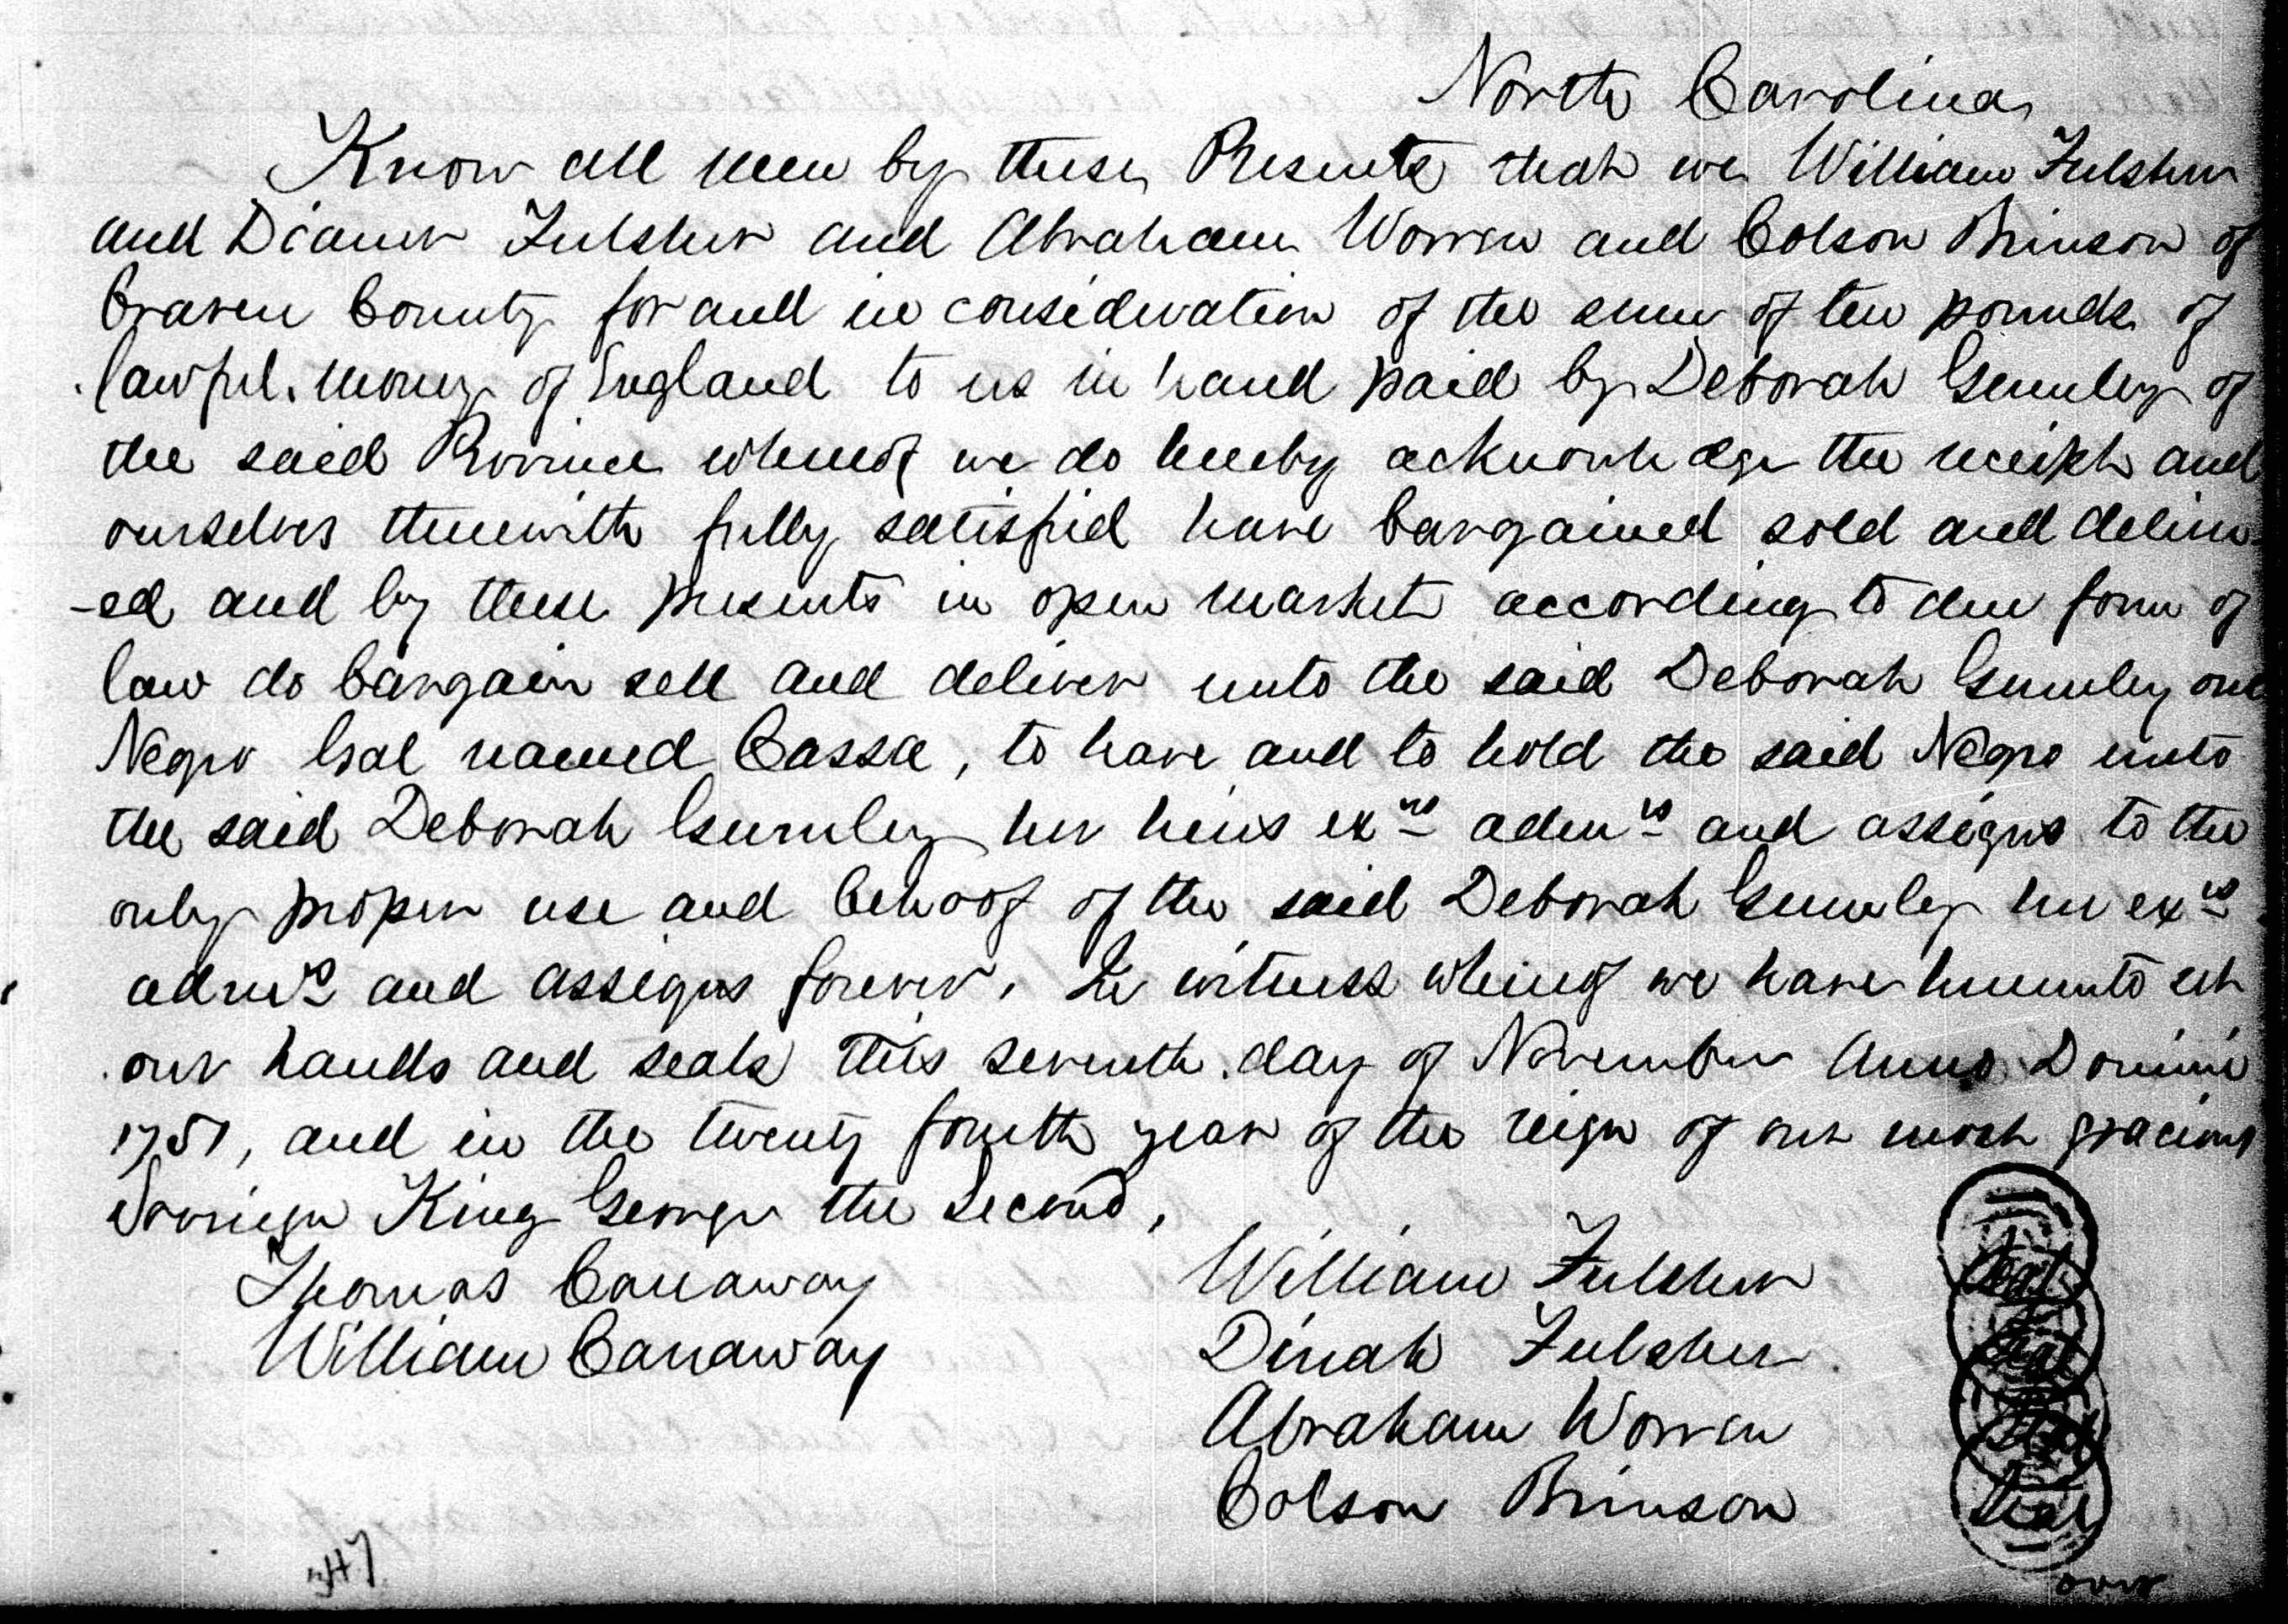 North Carolina
Know all men by these Presents that we William Fulsher
and Dianer Fulsher and Abraham Worren and Colson Brinson of
Craven County for and in consideration of the sum of ten pounds of
lawful money of England to us in hand paid by Deborah Gumley of
the said Province whereof we do hereby acknowledge the receipt and
ourselves therewith fully satisfied have bargained sold and deliver
-ed and by these presents in open market according to due form of
law do bargain sell and deliver unto the said Deborah Gumley one
Negro Gal named Cassa, to have and to hold the said Negro unto
the said Deborah Gumley her heirs exrs admrs and assigns to the
only proper use and behoof of the said Deborah Gumley her exrs
admrs and assigns forever. In witness whereof we have hereunto set
our hands and seals this seventh day of November Anno Domini
1751, and in the twenty fourth year of the reign of our most gracious
Soveriegn King George the Second,
Thomas Carraway William Fulsher Seal
William Carraway Dinah Fulsher Seal
Abraham Worren Seal
Colson Brinson Seal
over